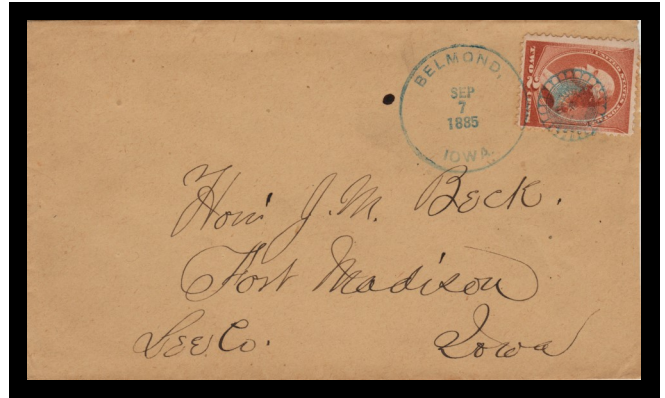 BELMOND,
SEP
7
1885
IOWA.
TWO 2 CENTS
Hon J. M. Beck.
Fort Madison
Lee. Co. Iowa